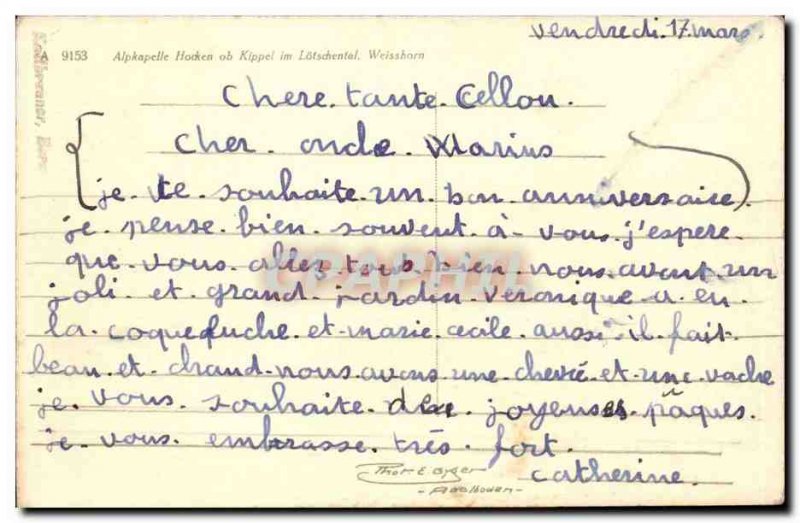 vendredi. 17. mars.
A 9153 Alpkapelle Hocken ob Kippel im Lötschental. Weisshorn
chere. tante. Cellou.
cher. oncle. Marius
je. te. souhaite. un. bon. anniversaire.
je. pense. bien. souvent. à. vous. j'espere.
que. vous. allez. tous. bien. nous. avont. un
joli. et. grand. jardin. veronique. a. eu.
la. coquefuche. et. marie. cecile. aussi. il. fait.
beau. et. chaud. nous. avons. une. chevre. et. une. vache
je. vous. souhaite. de. joyeuses. pâques.
je. vous. embrasse. très. fort.
catherine.
CPAPHIL